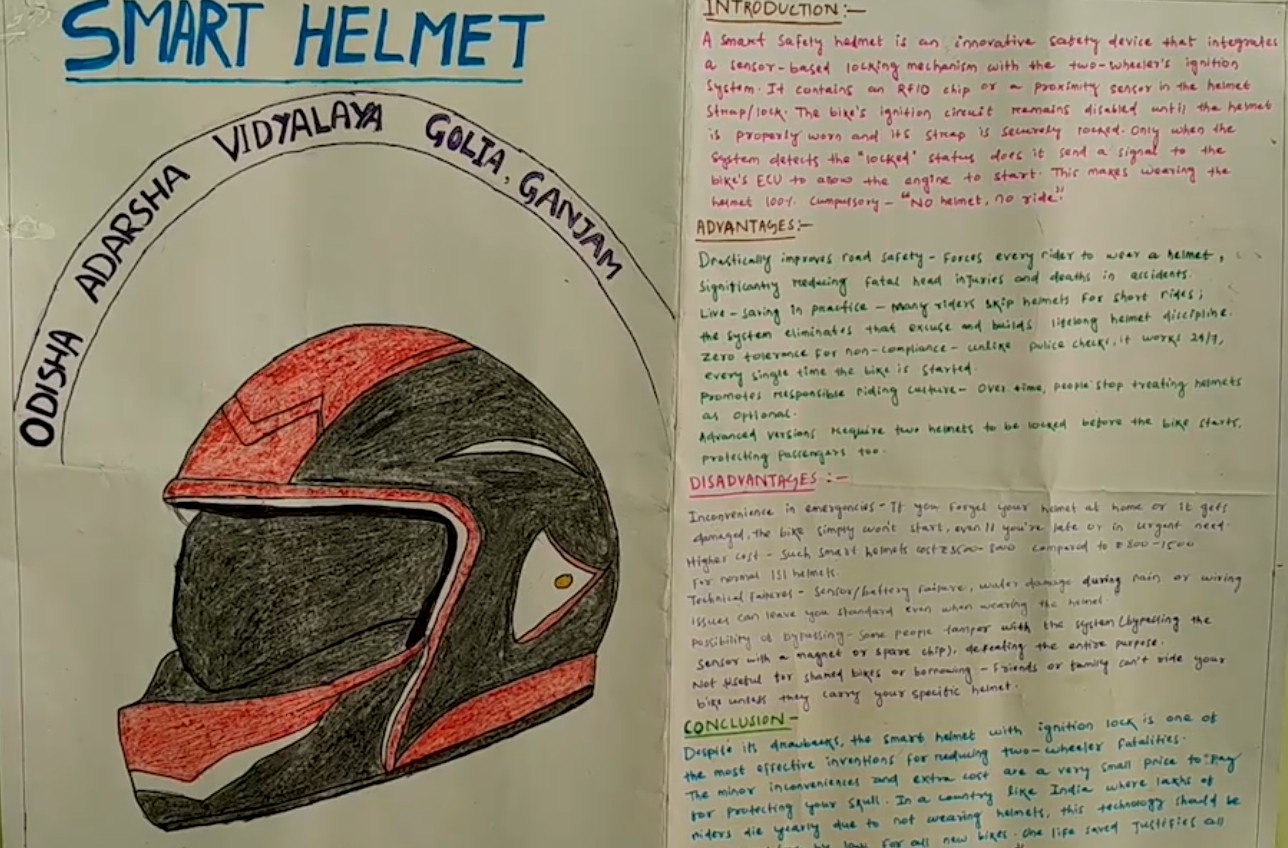 SMART HELMET
ODISHA ADARSHA VIDYALAYA GOLIA, GANJAM
INTRODUCTION:-
A smart safety helmet is an innovative safety device that integrates
a sensor-based locking mechanism with the two-wheeler's ignition
System. It contains an RFID chip or a proximity sensor in the helmet
Strap/lock. The bike's ignition circuit remains disabled until the helmet
is properly worn and its strap is securely locked. Only when the
System detects the "locked" status does it send a signal to the
bike's ECU to allow the engine to start. This makes wearing the
helmet 100% Cumpulsory - "No helmet, no ride".
ADVANTAGES:-
Drastically improves road safety - Forces every rider to wear a helmet,
Significantly reducing fatal head injuries and deaths in accidents.
Live-saving in practice - Many riders skip helmets for short rides;
the system eliminates that excuse and builds lifelong helmet discipline.
Zero tolerance for non-compliance - unlike police checks, it works 24/7,
every single time the bike is started.
Promotes responsible riding culture - Over time, people stop treating helmets
as optional.
Advanced versions require two helmets to be locked before the bike starts,
protecting passengers too.
DISADVANTAGES :-
Inconvenience in emergencies - If you forget your helmet at home or it gets
damaged, the bike simply won't start, even if you're late or in urgent need.
Higher cost - Such smart helmets cost ₹3500- compared to ₹800-1500
for normal ISI helmets.
Technical failures - Sensor/battery failure, water damage during rain or wiring
issues can leave you standard even when wearing the helmet
Possibility of bypassing - Some people tamper with the system (bypassing the
sensor with a magnet or spare chip), defeating the entire purpose.
Not useful for shared bikes or borrowing - Friends or family can't ride your
bike unless they carry your specific helmet.
CONCLUSION -
Despite its drawbacks, the smart helmet with ignition lock is one of
the most effective inventions for reducing two-wheeler fatalities.
The minor inconveniences and extra cost are a very small price to pay
for protecting your skull. In a country like India where lakhs of
riders die yearly due to not wearing helmets, this technology should be
by law for all new bikes. One life saved justifies all